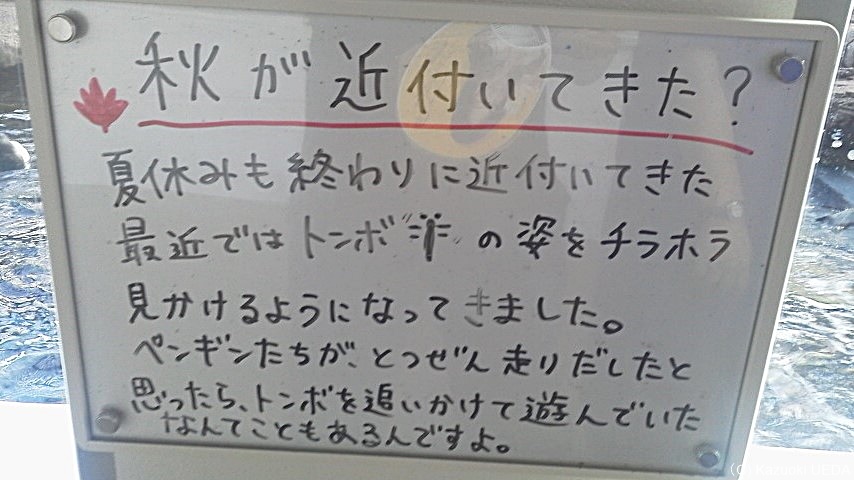 秋が近付いてきた?
夏休みも終わりに近付いてきた
最近ではトンボの姿をチラホラ
見かけるようになってきました。
ペンギンたちが、とつぜん走りだしたと
思ったら、トンボを追いかけて遊んでいた
なんてこともあるんですよ。